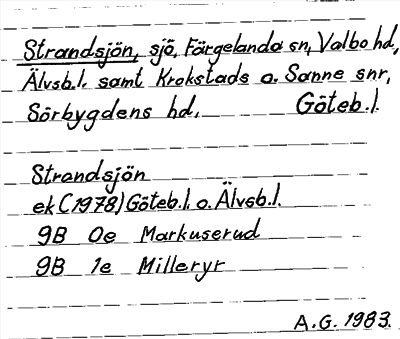 Strandsjön, sjö, Färgelanda sn, Valbo hd,
Älvsb.l. samt Krokstads o. Sanne snr,
Sörbygdens hd. Göteb.l.
Strandsjön
ek (1978) Göteb.l. o. Älvsb.l.
9B 0e Markuserud
9B 1e Milleryr
A.G. 1983.